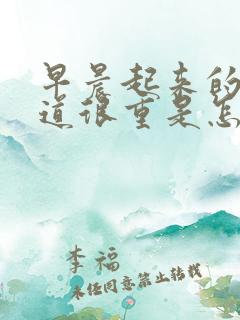 早晨起来的
道很重是怎
李福
未经同意禁止转载